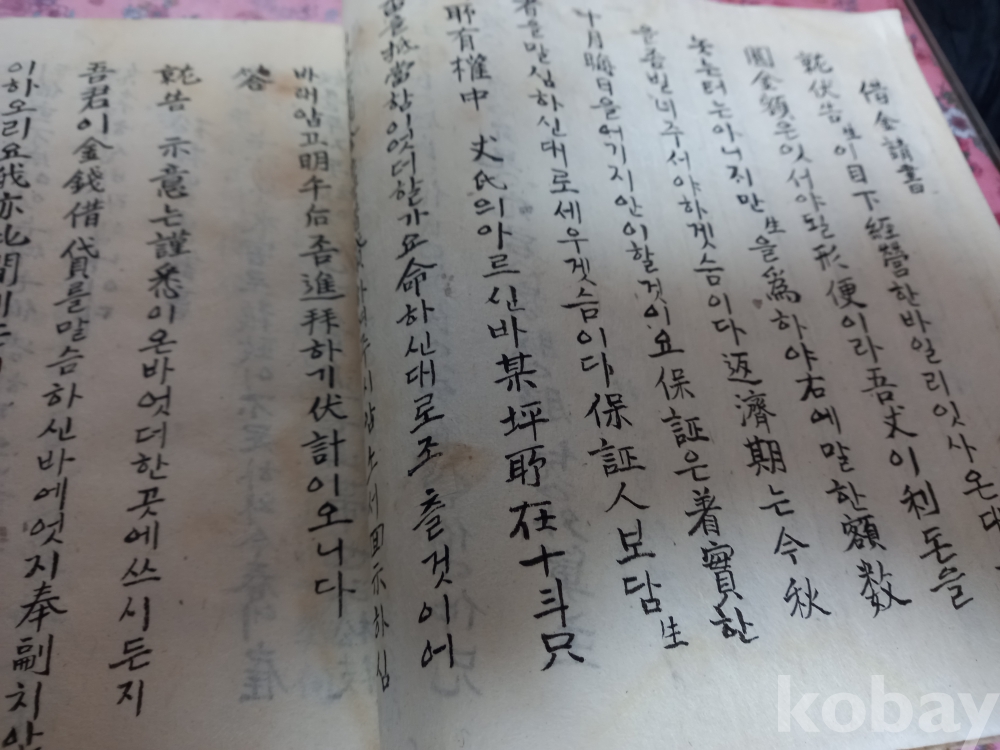 借金請書
就伏告生이目下經營한바일리잇사온대
圓金額은잇서야될形便이라吾丈이利돈을
놋는터는아니지만生을爲하야右에말한額数
을좀빌녀주서야하겟슴이다返濟期는今秋
十月晦日을어기지안이할것이요保証은着實한
者을말심하신대로세우겟슴이다保証人보담生
耶有權中 丈氏의아르신바某坪耶在十斗只
畓을抵當함이엇더한가요命하신대로조츨것이어
주시압소서回示하심
바래압고明午后吾進拜하기伏計이오니다
答
就告 示意는謹悉이온바엇더한곳에쓰시든지
吾君이金錢借貸를말슴하신바에엇지奉副치안
이하오리요我亦此間
kobay